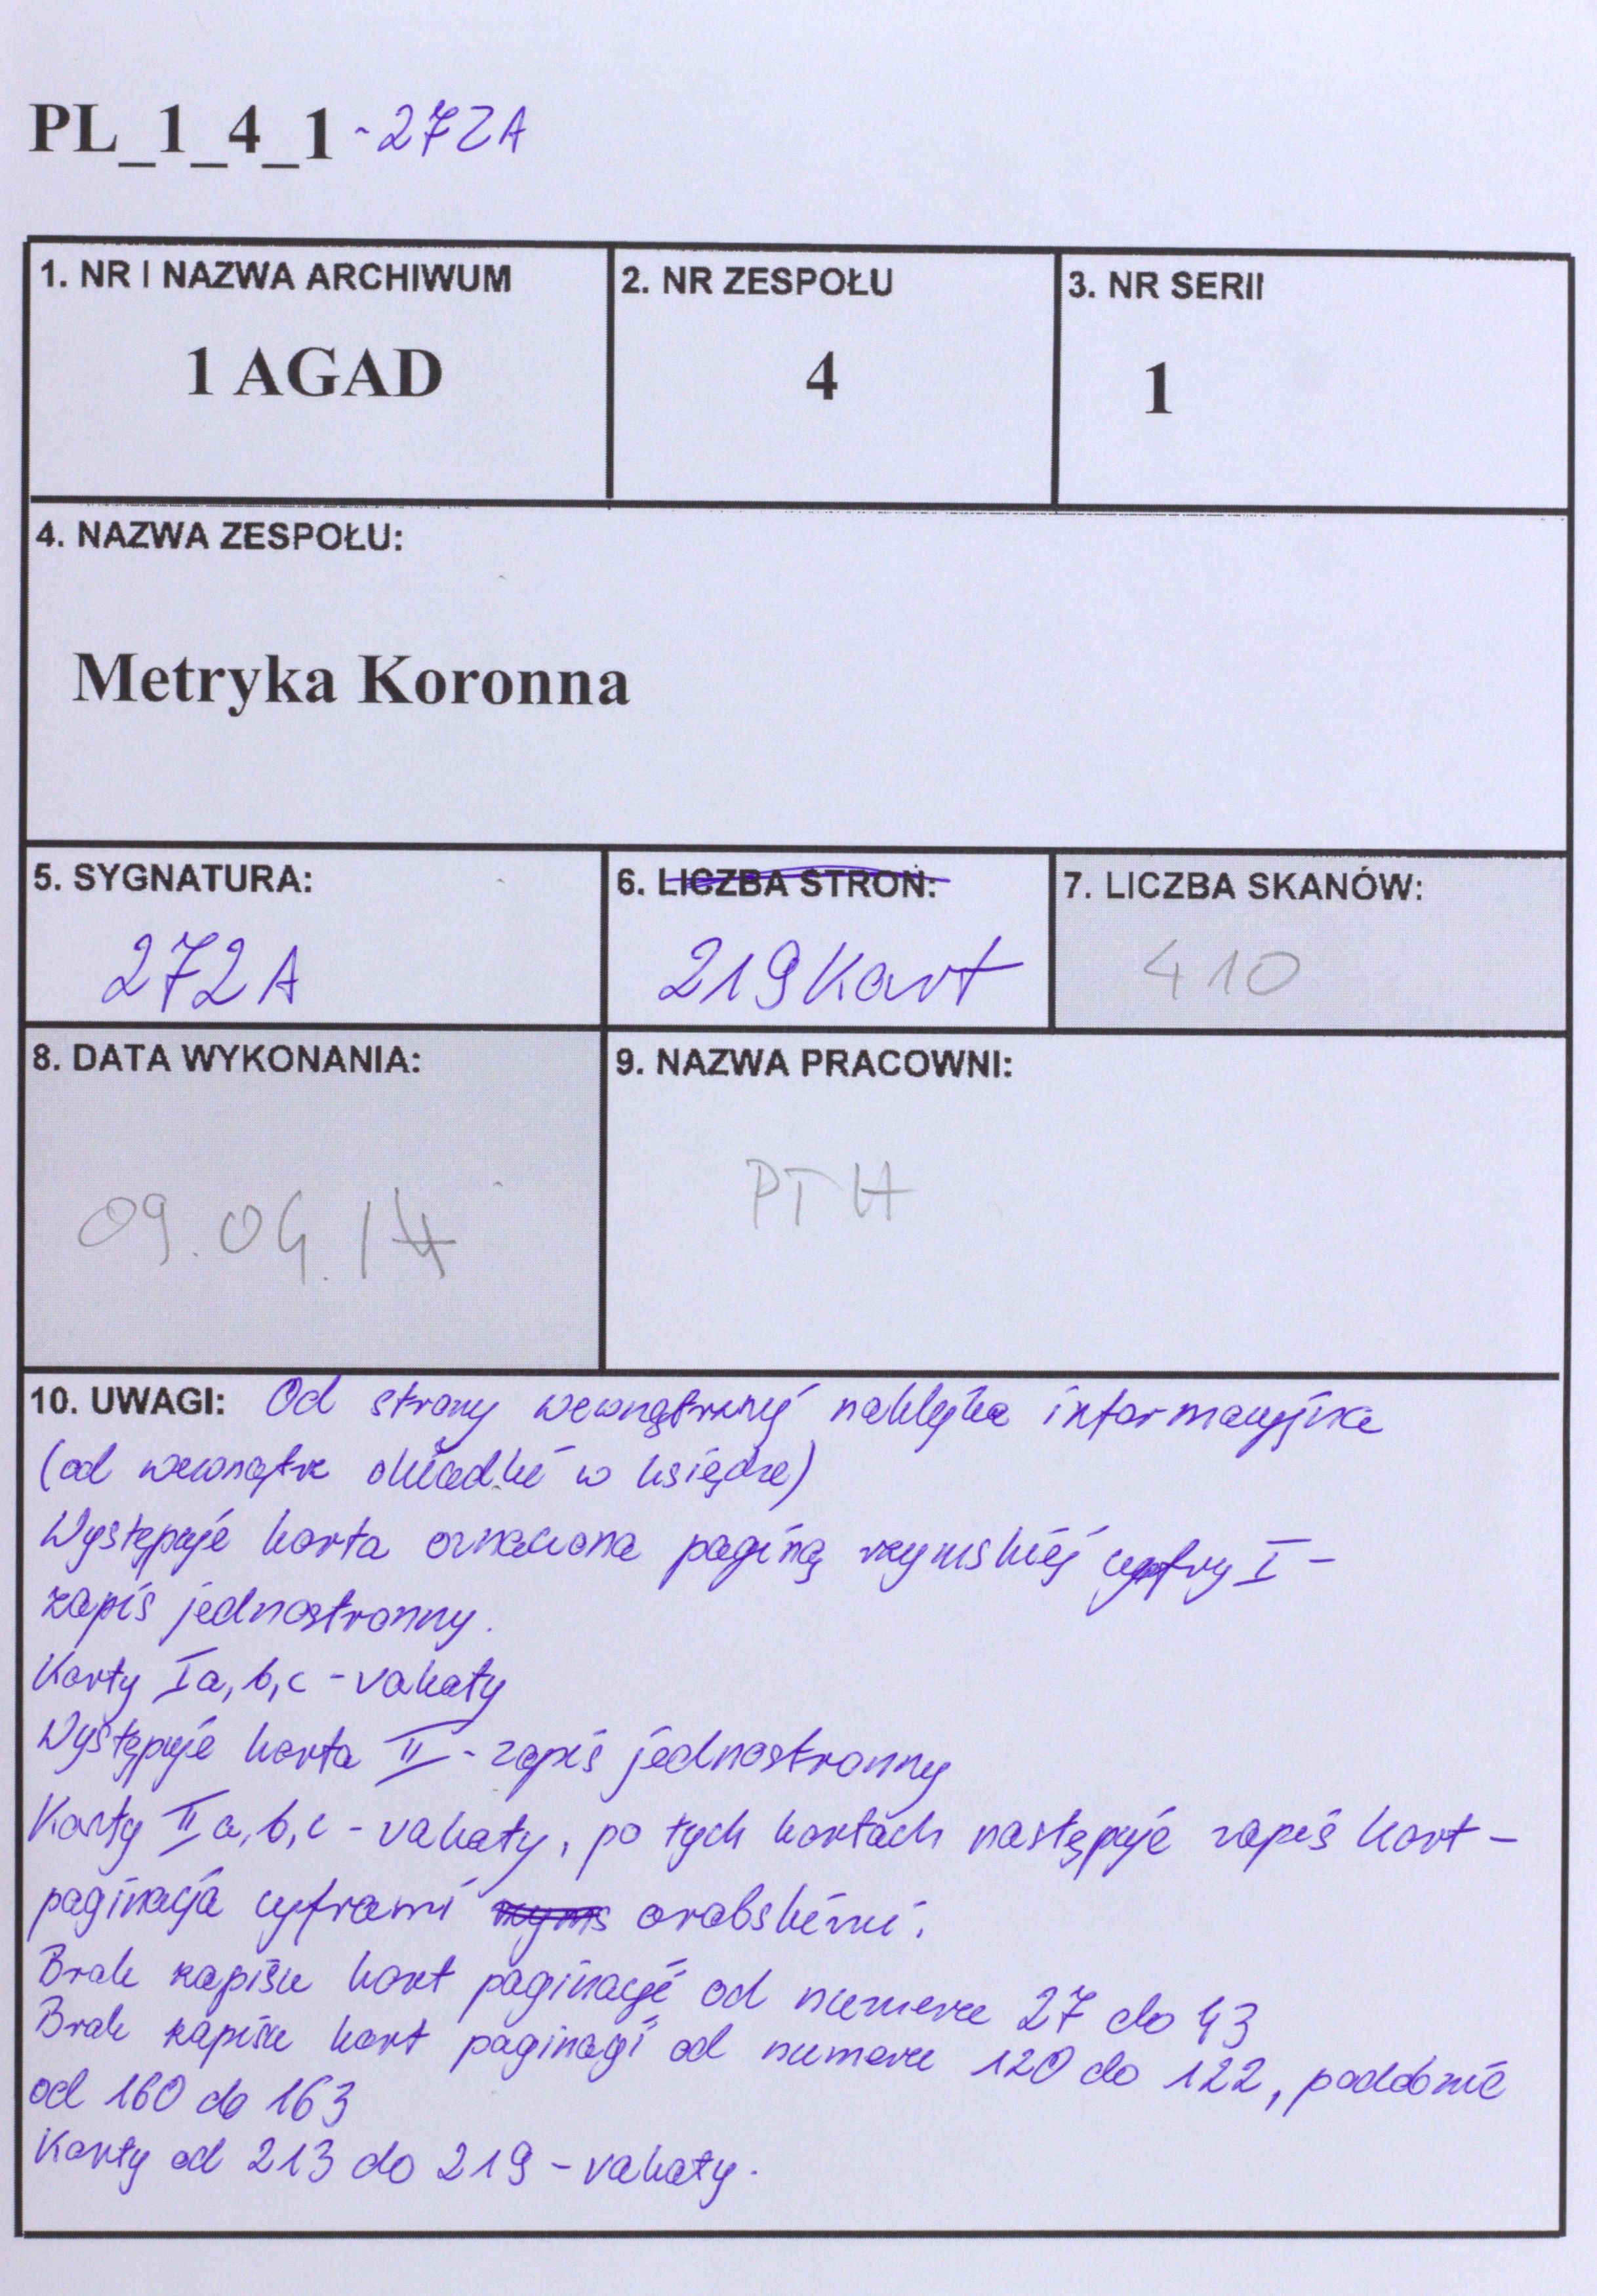 PL_1_4_1 -272A
1. NR I NAZWA ARCHIWUM
1 AGAD
2. NR ZESPOŁU
4
3. NR SERII
1
4. NAZWA ZESPOŁU:
Metryka Koronna
5. SYGNATURA:
272A
6. LICZBA STRON:
219 Kart
7. LICZBA SKANÓW:
410
8. DATA WYKONANIA:
09.04.14
9. NAZWA PRACOWNI:
PTH
10. UWAGI: Od strony wewnętrznej naklejka informacyjna
(od wewnątrz okładki w księdze)
Występuje karta oznaczona paginą rzymskiej cyfry I -
zapis jednostronny.
Karty I a, b, c - vakaty
Występuje karta II - zapis jednostronny
Karty II a, b, c - vakaty, po tych kartach następuje zapis kart -
paginacja cyframi arabskimi.
Brak zapisu kart paginacji od numeru 27 do 43
Brak zapisu kart paginagi od numeru 120 do 122, poddobnie
od 160 do 163
Karty od 213 do 219 - vakaty.